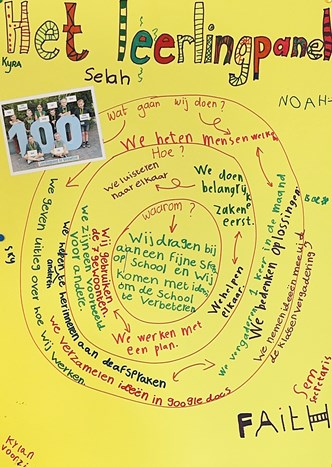 Het leerlingpanel
KYRA
Selah
NOAH
100
Wat gaan wij doen?
We heten mensen welkom
Hoe?
We luisteren
naar elkaar
We doen
belangrijke
zaken
eerst.
waarom?
Wij dragen bij
aan een fijne sfeer
op School en wij
komen met ideeën
om de School
te verbeteren
Wij gebruiken
de 7 gewoonten.
We zijn een voorbeeld
voor andere.
We helpen
elkaar.
We werken met
een plan.
We herinneren
anderen
aan de afspraken
we geven uitleg over hoe wij
werken.
we verzamelen ideeën in google docs
we vergaderen 1 keer in de maand
We bedenken oplossingen.
We nemen ideeën mee uit
de klassenvergadering
sky
Sem
secretaris
FAITH
Kylan